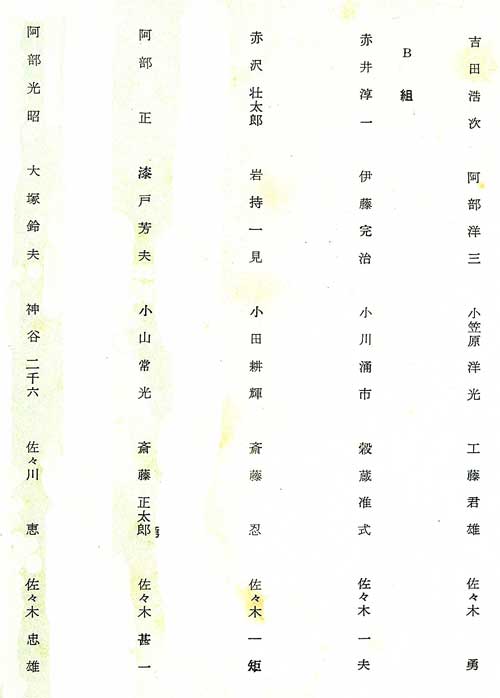 吉田浩次 阿部洋三 小笠原洋光 工藤君雄 佐々木勇
B組
赤井淳一 伊藤完治 小川涌市 穀蔵准式 佐々木一夫
赤沢壮太郎 岩持一見 小田耕輝 斎藤忍 佐々木一矩
阿部正 漆戸芳夫 小山常光 斎藤正太郎 佐々木甚一
阿部光昭 大塚鈴夫 神谷二千六 佐々川恵 佐々木忠雄